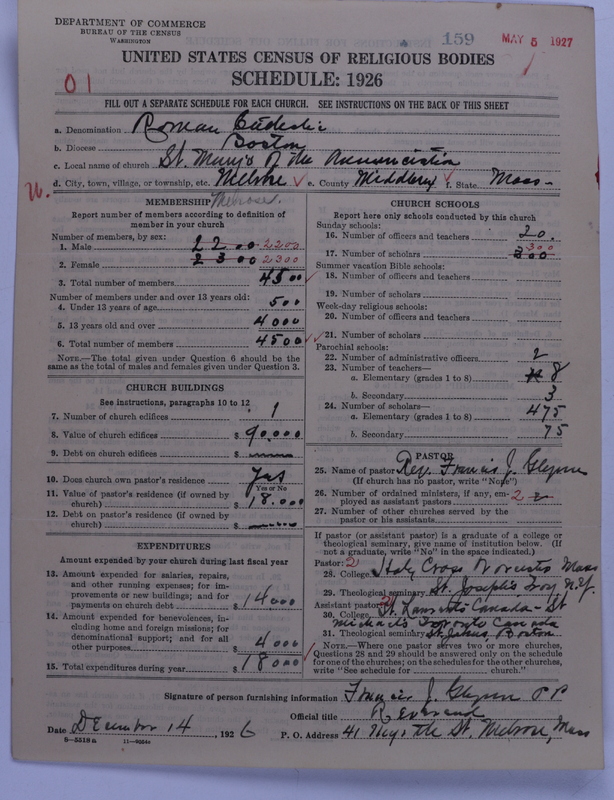 DEPARTMENT OF COMMERCE
BUREAU OF THE CENSUS
WASHINGTON
159
MAY 5 1927
UNITED STATES CENSUS OF RELIGIOUS BODIES
SCHEDULE: 1926
01
FILL OUT A SEPARATE SCHEDULE FOR EACH CHURCH. SEE INSTRUCTIONS ON THE BACK OF THIS SHEET
a. Denomination Roman Catholic
b. Diocese Boston
c. Local name of church St. Mary's of the Annunciation
d. City, town, village, or township, etc. Melrose e. County Middlesex f. State Mass-
MEMBERSHIP Melrose.
Report number of members according to definition of member in your church
Number of members, by sex:
1. Male 2200 2200
2. Female 2300 2300
3. Total number of members 4500
Number of members under and over 13 years old:
4. Under 13 years of age 500
5. 13 years old and over 4000
6. Total number of members 4500
NOTE.—The total given under Question 6 should be the same as the total of males and females given under Question 3.
CHURCH BUILDINGS
See instructions, paragraphs 10 to 12
7. Number of church edifices 1
8. Value of church edifices $ 90,000
9. Debt on church edifices $
10. Does church own pastor's residence Yes
Yes or No
11. Value of pastor's residence (if owned by church) $ 18.000
12. Debt on pastor's residence (if owned by church) $
EXPENDITURES
Amount expended by church during last fiscal year
13. Amount expended for salaries, repairs, and other running expenses; for improvements or new buildings; and for payments on church debt $ 14000
14. Amount expended for benevolences, including home and foreign missions; for denominational support; and for all other purposes $ 4000
15. Total expenditures during year $ 18000
CHURCH SCHOOLS
Report here only schools conducted by this church
Sunday schools:
16. Number of officers and teachers 20.
17. Number of scholars 300
Summer vacation Bible schools:
18. Number of officers and teachers
19. Number of scholars
Week-day religious schools:
20. Number of officers and teachers
21. Number of scholars
Parochial schools:
22. Number of administrative officers 2
23. Number of teachers—
a. Elementary (grades 1 to 8) 8
b. Secondary 3
24. Number of scholars—
a. Elementary (grades 1 to 8) 475
b. Secondary 75
PASTOR
25. Name of pastor Rev. Francis J. Glynn
(If church has no pastor, write "None")
26. Number of ordained ministers, if any, employed as assistant pastors 2 2
27. Number of other churches served by the pastor or his assistants
If pastor (or assistant pastor) is a graduate of a college or theological seminary, give name of institution below. (If not a graduate, write "No" in the space indicated.)
Pastor: 2
28. College Holy Cross Worcester Mass
29. Theological seminary St. Joseph's Troy N.Y.
Assistant pastor:
30. College St. Canada - St Michaels Toronto Canada
31. Theological seminary St. Johns Boston
NOTE.—Where one pastor serves two or more churches, Questions 28 and 29 should be answered only on the schedule for one of the churches; on the schedules for the other churches, write "See schedule for church."
Signature of person furnishing information Francis J. Glynn P P
Official title Reverend
Date December 14, 1926 P. O. Address 41 Myrtle St. Melrose, Mass